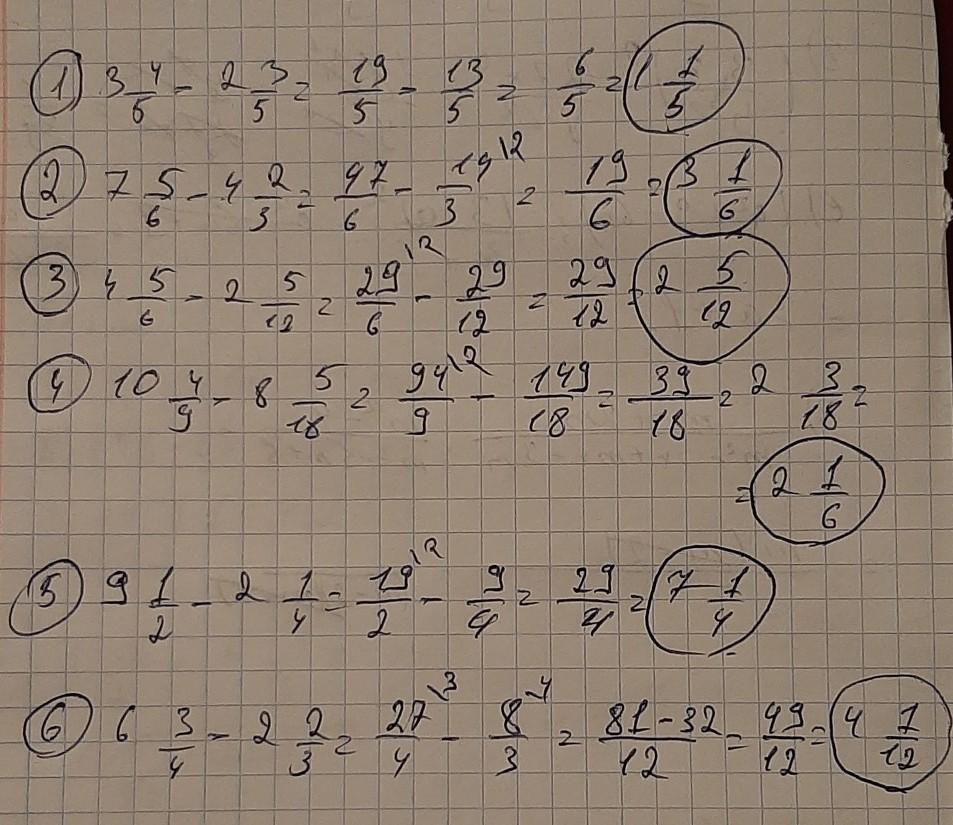 ① 3 4/5 - 2 3/5 = 19/5 - 13/5 = 6/5 = 1 1/5
② 7 5/6 - 4 2/3 = 47/6 - 14\2/3 = 19/6 = 3 1/6
③ 4 5/6 - 2 5/12 = 29\2/6 - 29/12 = 29/12 = 2 5/12
④ 10 4/9 - 8 5/18 = 94\2/9 - 149/18 = 39/18 = 2 3/18 =
= 2 1/6
⑤ 9 1/2 - 2 1/4 = 19\2/2 - 9/4 = 29/4 = 7 1/4
⑥ 6 3/4 - 2 2/3 = 27\3/4 - 8\4/3 = 81-32/12 = 49/12 = 4 1/12